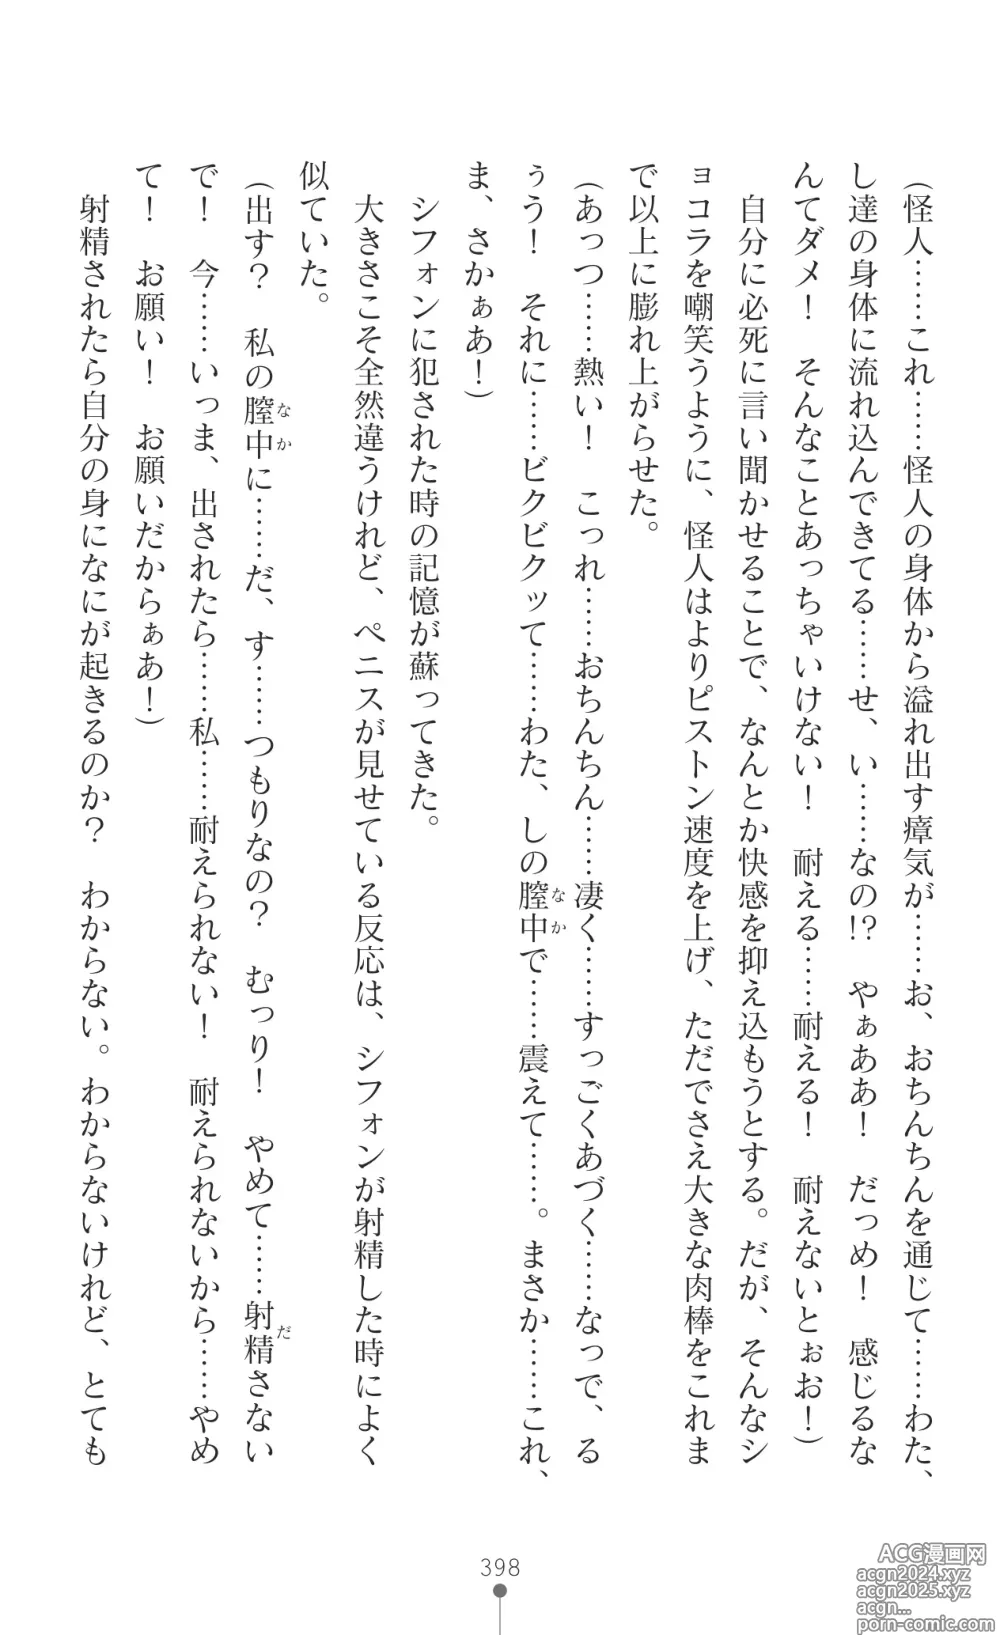 (怪人……これ……怪人の身体から溢れ出す瘴気が……お、おちんちんを通じて……わた、
し達の身体に流れ込んできてる……せ、い……なの!?　やぁああ！　だっめ！　感じるな
んてダメ！　そんなことあっちゃいけない！　耐える……耐える！　耐えないとぉお！)
自分に必死に言い聞かせることで、なんとか快感を抑え込もうとする。だが、そんなシ
ョコラを嘲笑うように、怪人はよりピストン速度を上げ、ただでさえ大きな肉棒をこれま
で以上に膨れ上がらせた。
(あっつ……熱い！　こっれ……おちんちん……凄く……すっごくあづく……なっで、る
ぅう！　それに……ビクビクッて……わた、しの膣中なかで……震えて……。まさか……これ、
ま、さかぁあ！)
シフォンに犯された時の記憶が蘇ってきた。
大きさこそ全然違うけれど、ペニスが見せている反応は、シフォンが射精した時によく
似ていた。
(出す？　私の膣中なかに……だ、す……つもりなの？　むっり！　やめて……射精ださない
で！　今……いっま、出されたら……私……耐えられない！　耐えられないから……やめ
て！　お願い！　お願いだからぁあ！)
射精されたら自分の身になにが起きるのか？　わからない。わからないけれど、とても
398
ACG漫画网
acgn2024.xyz
acgn2025.xyz
acgn...
porn-comic.com